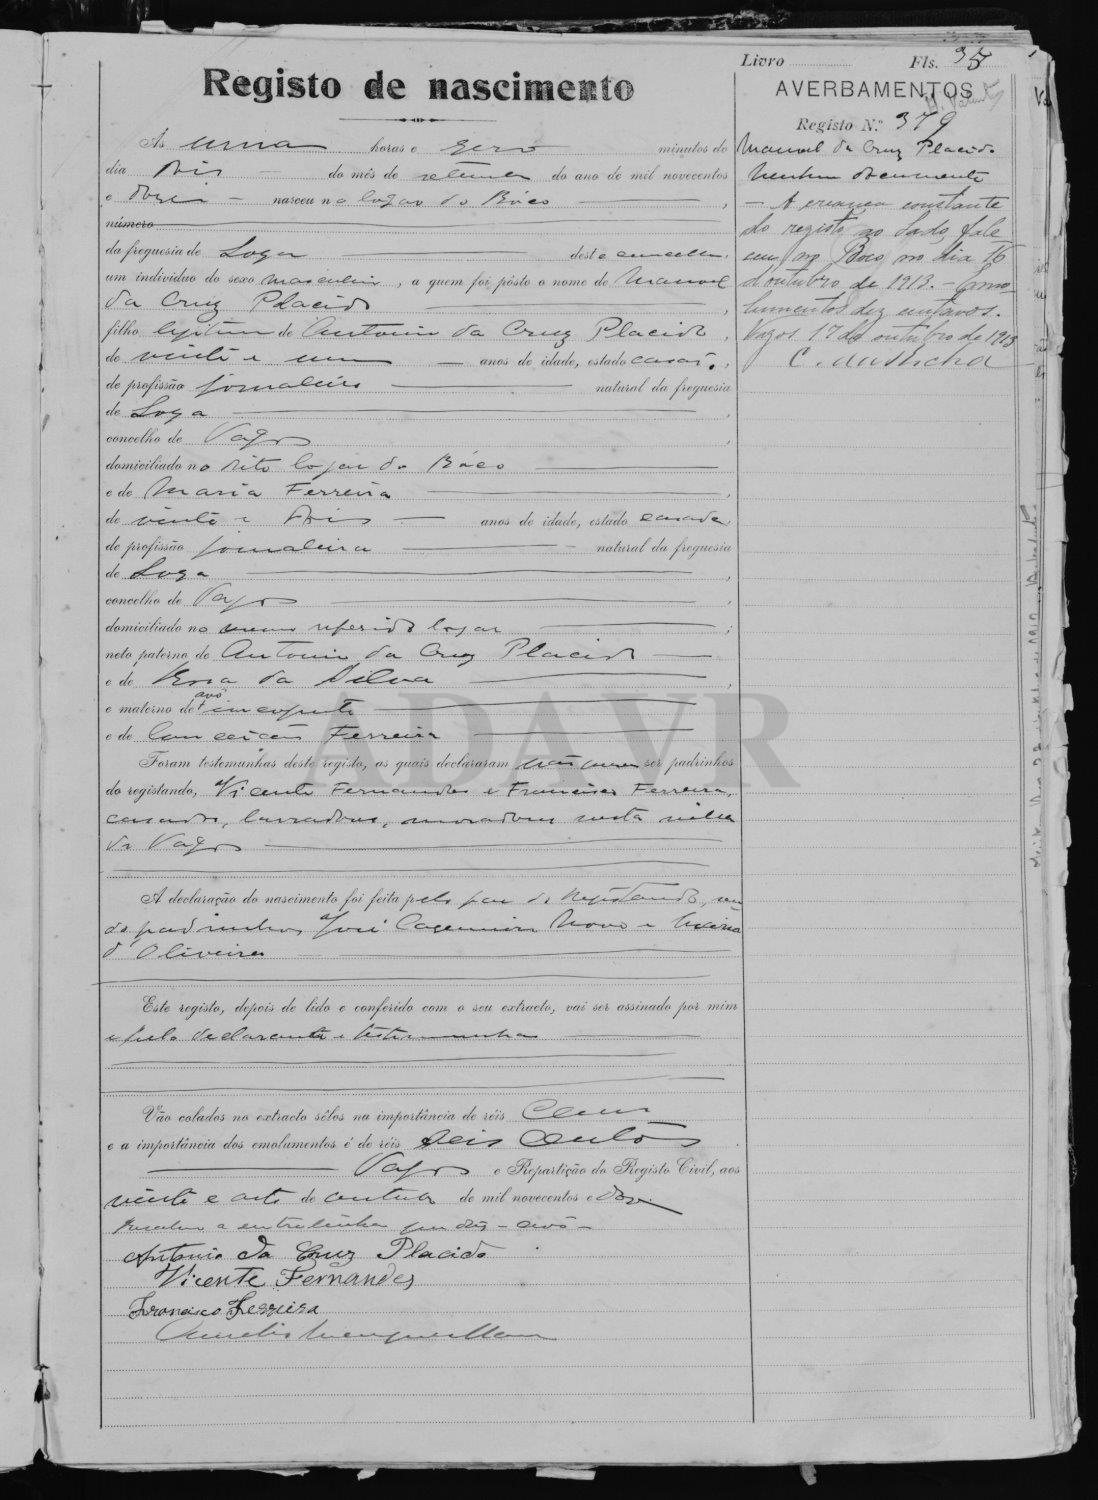 Livro Fls. 35
Registo de nascimento
AVERBAMENTOS
Registo N.º 379
Manoel da Cruz Placido
Nenhum documento
— A creança constante
do registo ao lado, fale
ceu no Boco no dia 16
d'outubro de 1913. — Emo-
lumentos dez centavos.
Vagos 17 de outubro de 1913
Ás uma horas e zero minutos do
dia dois do mês de setembro do ano de mil novecentos
e doze nasceu no logar do Bóco,
número
da freguesia de Soza deste concelho
um indivíduo do sexo masculino, a quem foi pôsto o nome de Manoel
da Cruz Placido
filho legitimo de Antonio da Cruz Placido,
de vinte e um anos de idade, estado casado,
de profissão jornaleiro natural da freguesia
de Soza,
concelho de Vagos,
domiciliado no dito logar do Bóco
e de Maria Ferreira,
de vinte e dois anos de idade, estado casada
de profissão jornaleira natural da freguesia
de Soza,
concelho de Vagos,
domiciliado no mesmo referido logar;
neto paterno de Antonio da Cruz Placido
e de Rosa da Silva,
e materno de avô incognito
e de Conceição Ferreira
Foram testemunhas deste registo, as quais declararam não serem ser padrinhos
do registando, Vicente Fernandes e Francisco Ferreira,
casados, lavradores, moradores nesta villa
de Vagos
A declaração do nascimento foi feita pelo pae do registando, sen
do padrinhos José Casemiro Novo e
d'Oliveira
Este registo, depois de lido e conferido com o seu extracto, vai ser assinado por mim
e pelo declarante e testemunhas
Vão colados no extracto sêlos na importância de réis Cem
e a importância dos emolumentos é de réis Seis Centos
Vagos e Repartição do Registo Civil, aos
vinte e oito de outubro de mil novecentos e doze
Resalvo a entrelinha que diz — avô —
Antonio da Cruz Placido
Vicente Fernandes
Francisco Ferreira
ADAVR